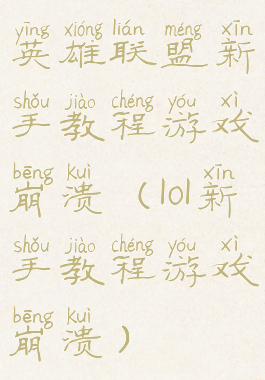 yīng xióng lián méng xīn
英雄联盟新
shǒu jiào chéng yóu xì
手教程游戏
bēng kuì xīn
崩溃（lol新
shǒu jiào chéng yóu xì
手教程游戏
bēng kuì
崩溃）